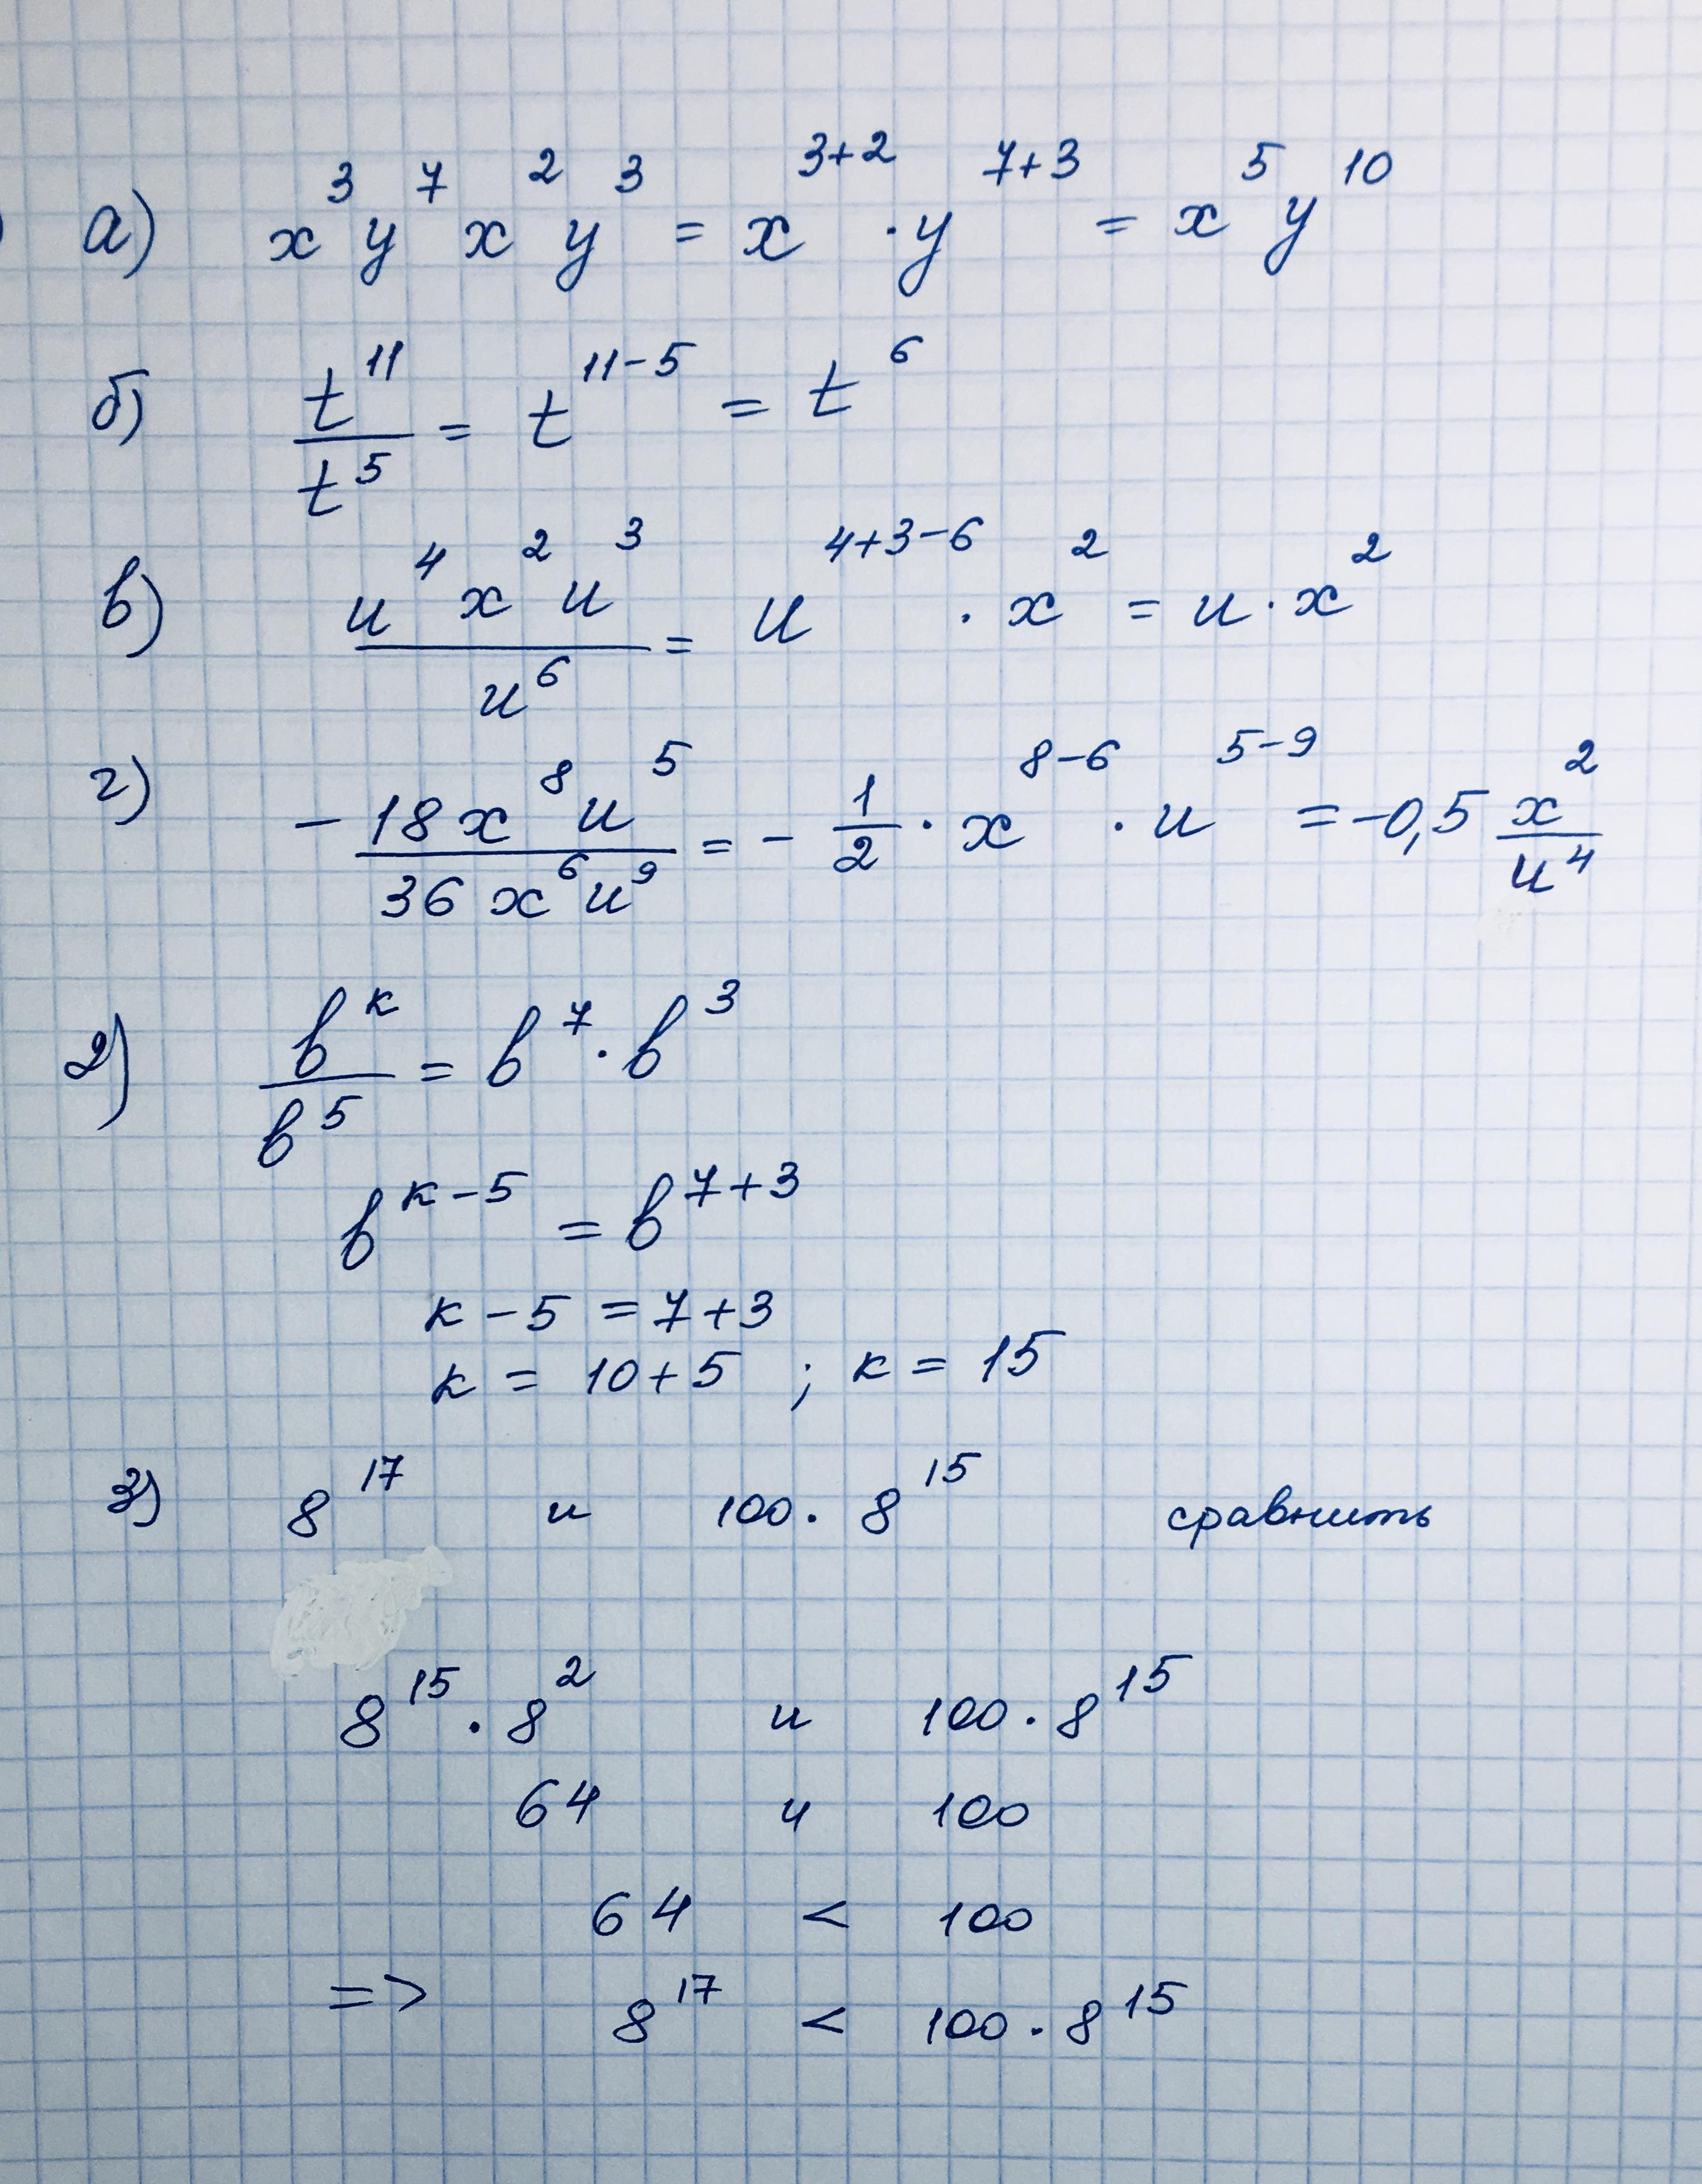 а) x³y⁷x²y³ = x³⁺² · y⁷⁺³ = x⁵y¹⁰
б) t¹¹/t⁵ = t¹¹⁻⁵ = t⁶
в) u⁴x²u³/u⁶ = u⁴⁺³⁻⁶ · x² = u · x²
г) -18x⁸u⁵/36x⁶u⁹ = -1/2 · x⁸⁻⁶ · u⁵⁻⁹ = -0,5 x²/u⁴
2) b^к/b⁵ = b⁷ · b³
b^(к-5) = b⁷⁺³
к - 5 = 7 + 3
к = 10 + 5 ; к = 15
3) 8¹⁷ и 100 · 8¹⁵ сравнить
8¹⁵ · 8² и 100 · 8¹⁵
64 и 100
64 < 100
=> 8¹⁷ < 100 · 8¹⁵